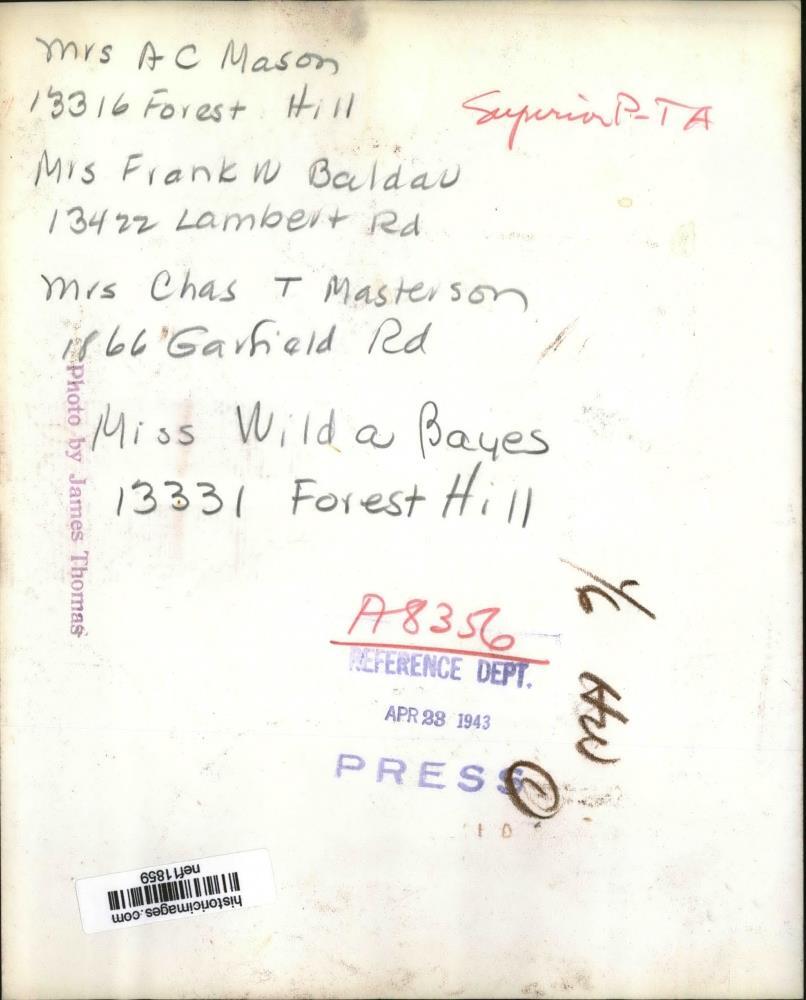 Mrs A C Mason
13316 Forest Hill
Superior P-TA
Mrs Frank W Baldau
13422 Lambert Rd
Mrs Chas T Masterson
1866 Garfield Rd
Miss Wilda Bayes
13331 Forest Hill
Photo by James Thomas
A8356
REFERENCE DEPT.
APR 28 1943
PRESS
historicimages.com
nef11859